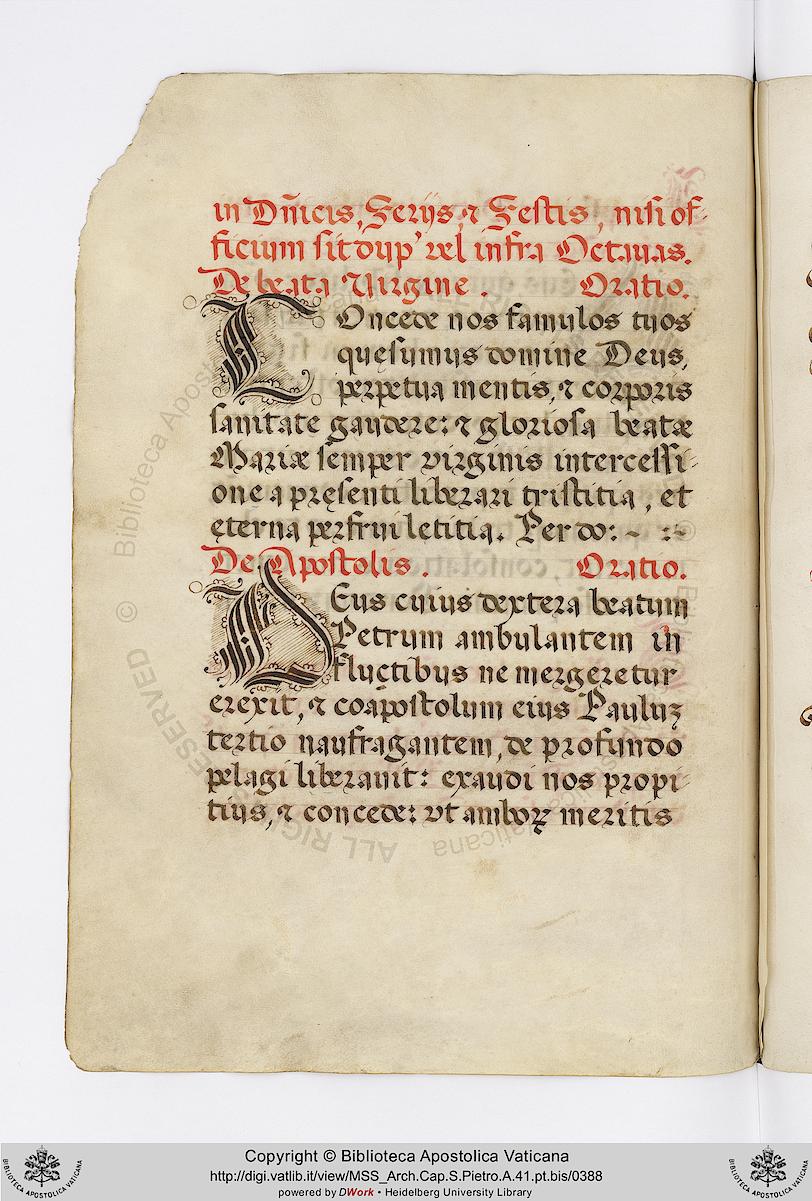 in Dn̄icis, Ferijs, ⁊ Festis, nisi of-
ficium sit dup' vel infra Octavas.
De beata Virgine. Oratio.
COncede nos famulos tuos
quęsumus domine Deus,
perpetua mentis, ⁊ corporis
sanitate gaudere: ⁊ gloriosa beatæ
Mariæ semper virginis intercessi-
one a pręsenti liberari tristitia, et
ęterna perfrui letitia. Per do: ~ :~
De Apostolis. Oratio.
DEus cuius dextera beatum
Petrum ambulantem in
fluctibus ne mergeretur
erexit, ⁊ coapostolum eius Pauluꝫ
tertio naufragantem, de profundo
pelagi liberauit: exaudi nos propi-
tius, ⁊ concede: vt amboꝝ meritis
Copyright © Biblioteca Apostolica Vaticana
http://digi.vatlib.it/view/MSS_Arch.Cap.S.Pietro.A.41.pt.bis/0388
powered by DWork • Heidelberg University Library